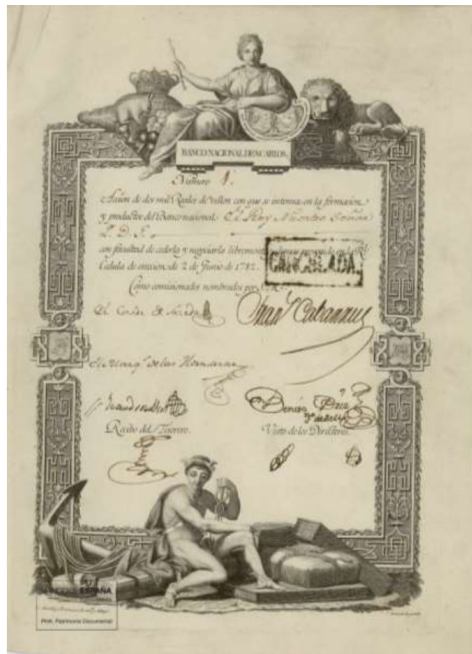 BANCO NACIONAL DE Sⁿ CARLOS.
Numero 1.
Accion de dos mil Reales de vellon con que se interesa en la formacion
y productos del Banco nacional El Rey Nuestro Señor
con facultad de cederla y negociarla libremente
Cedula de ereccion de 2 de Junio de 1782.
CANCELADA.
Como comisionados nombrados por
Franᶜᵒ Cabarrus
El Marqˢ de las Hormazas
Recibo del Tesorero.
Visto de los Directores.
ESPAÑA